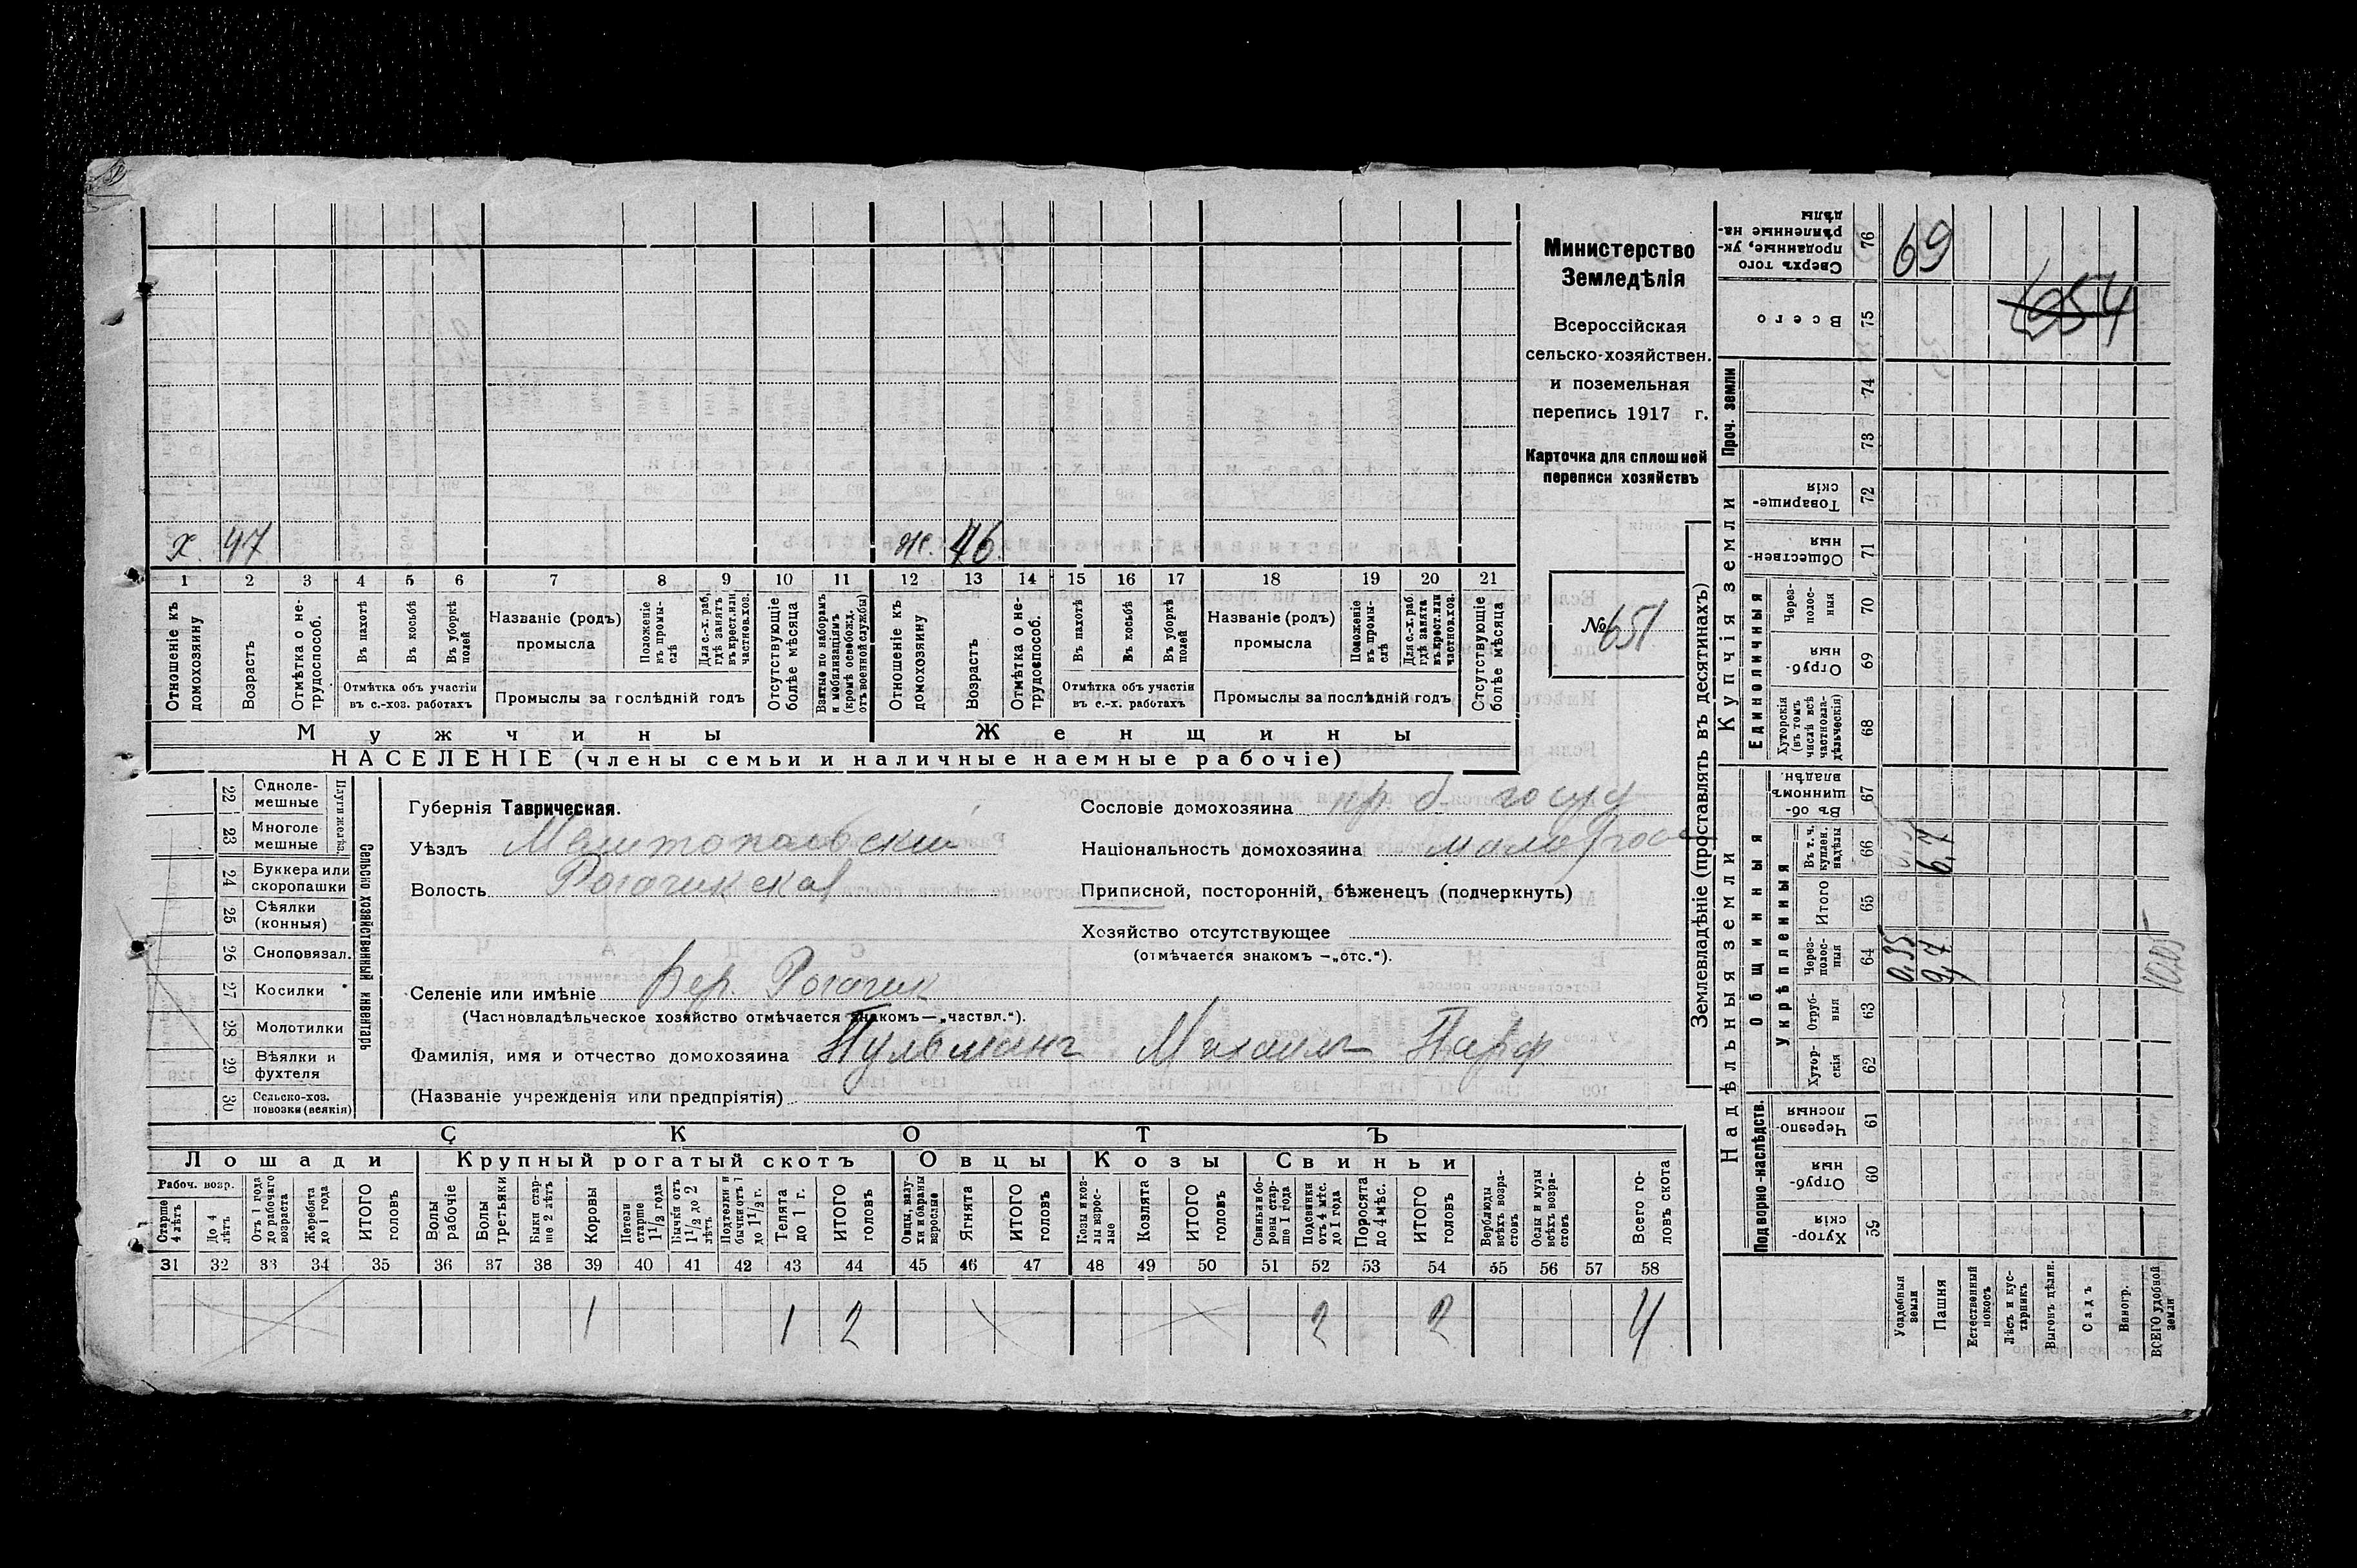 69
654
х. 47
ж. 46.
1 2 3 4 5 6 7 8 9 10 11 12 13 14 15 16 17 18 19 20 21
Отношеніе къ домохозяину
Возрастъ
Отмѣтка о не-трудоспособ.
Въ пахотѣ
Въ косьбѣ
Въ уборкѣ полей
Отмѣтка объ участіи въ с.-хоз. работахъ
Названіе (родъ) промысла
Положеніе въ промы-слѣ
Для с.-х. раб, гдѣ занятъ въ крест. или частнов. хоз.
Промыслы за послѣдній годъ
Отсутствующіе болѣе мѣсяца
Взятые по наборамъ и мобилизаціямъ (кромѣ освобожд. отъ военной службы)
Отношеніе къ домохозяину
Возрастъ
Отмѣтка о не-трудоспособ.
Въ пахотѣ
Въ косьбѣ
Въ уборкѣ полей
Отмѣтка объ участіи въ с.-х. работахъ
Названіе (родъ) промысла
Положеніе въ промы-слѣ
Для с.-х. раб. гдѣ занята въ крест. или частнов. хоз.
Промыслы за послѣдній годъ
Отсутствующіе болѣе мѣсяца
Мужчины
Женщины
НАСЕЛЕНІЕ (члены семьи и наличные наемные рабочіе)
Министерство
Земледѣлія
Всероссійская
сельско-хозяйствен.
и поземельная
перепись 1917 г.
Карточка для сплошной
переписи хозяйствъ
№ 651
Сельско хозяйственный инвентарь
Плуги желѣз.
22 Одноле-мешные
23 Многоле мешные
24 Буккера или скоропашки
25 Сѣялки (конныя)
26 Сноповязал.
27 Косилки
28 Молотилки
29 Вѣялки и фухтеля
30 Сельско-хоз. повозки (всякія)
Губернія Таврическая.
Уѣздъ Мелитопольскій
Волость Рогачикская
Селеніе или имѣніе Вер. Рогачик
(Частновладѣльческое хозяйство отмѣчается знакомъ—„частвл.“).
Фамилія, имя и отчество домохозяина Пульманъ Михаилъ Парф
(Названіе учрежденія или предпріятія)
Сословіе домохозяина пр. б. госуд
Національность домохозяина малоросс
Приписной, посторонній, бѣженецъ (подчеркнуть)
Хозяйство отсутствующее
(отмѣчается знакомъ —„отс.“).
СКОТЪ
Лошади
Крупный рогатый скотъ
Овцы
Козы
Свиньи
Рабоч. возр.
Старше 4 лѣтъ
До 4 лѣтъ
Отъ 1 года до рабочаго возраста
Жеребята до 1 года
ИТОГО головъ
Волы рабочіе
Волы третьяки
Быки стар-ше 2 лѣтъ
Коровы
Нетели старше 1 1/2 года
Бычки отъ 1 1/2 до 2 лѣтъ
Подтелки и бычки отъ 1 до 1 1/2 г.
Телята до 1 г.
ИТОГО головъ
Овцы, валу-хи и бараны взрослые
Ягнята
ИТОГО головъ
Козы и коз-лы взрос-лые
Козлята
ИТОГО головъ
Свиньи и бо-ровы стар-ше 1 года
Подсвинки отъ 4 мѣс. до 1 года
Поросята до 4 мѣс.
ИТОГО головъ
Верблюды всѣхъ возра-стовъ
Ослы и мулы всѣхъ возра-стовъ
Всего го-ловъ скота
31 32 33 34 35 36 37 38 39 40 41 42 43 44 45 46 47 48 49 50 51 52 53 54 55 56 57 58
1 1 2 2 2 4
Землевладѣніе (проставлять въ десятинахъ)
Надѣльныя земли
Купчія земли
Проч. земли
Подворно-наслѣдств.
Общинныя
Укрѣпленныя
Единоличныя
Сверхъ того проданные, ук-рѣпленные на-дѣлы 76
Всего 75
74
73
Товарище-скія 72
Обществен-ныя 71
Через-полос-ныя 70
Отруб-ныя 69
Хуторскія (въ томъ числѣ всѣ частновла-дѣльческія) 68
Въ об-щинномъ владѣн. 67
Въ т. ч. куплен. надѣлы 66
Итого 65
Через-полос-ныя 64
Отруб-ныя 63
Хутор-скія 62
Черезпо-лосныя 61
Отруб-ныя 60
Хутор-скія 59
6,7
0,35
9,7
10,05
Усадебныя земли
Пашня
Естественный покосъ
Лѣсъ и кус-тарникъ
Выгонъ цѣлин.
Садъ
Виногр.
ВСЕГО удобной земли